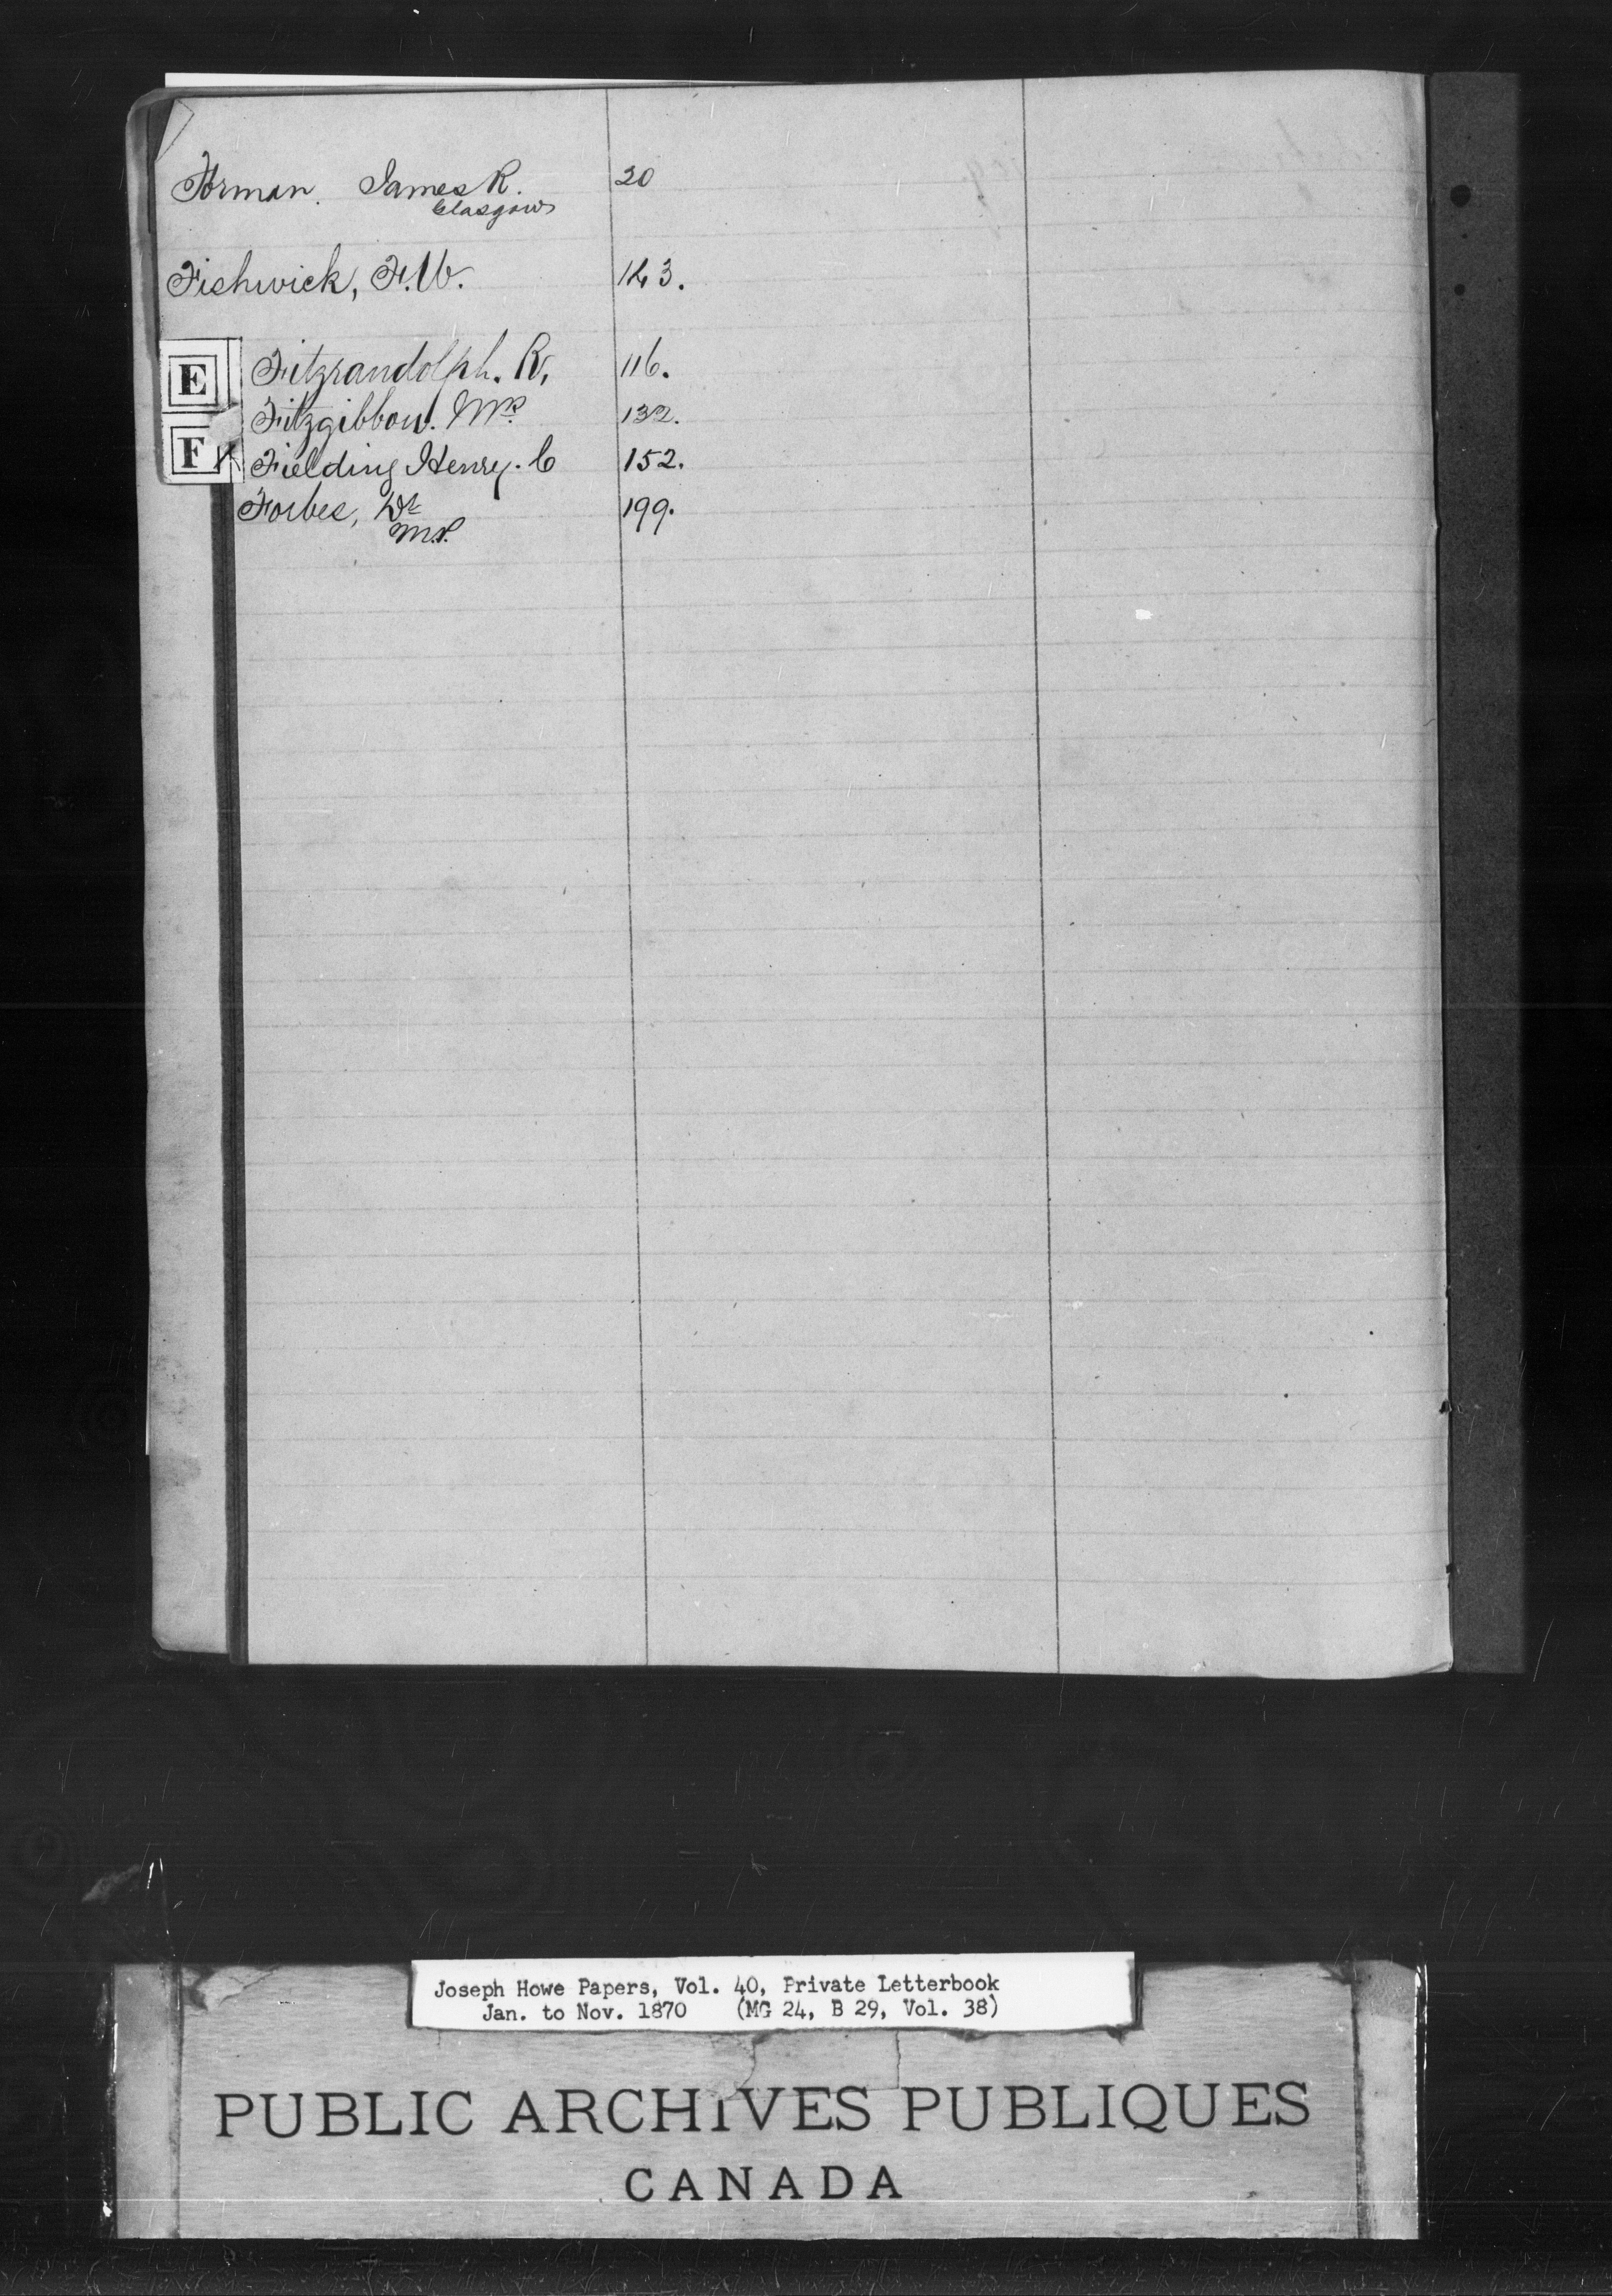 Forman. James R. 20
Glasgow
Fishwick, F. W. 143.
E Fitzrandolph. R, 116.
Fitzgibbon. Mr. 132.
F Fielding Henry. C 152.
Forbes, Dr 199.
M.P.
Joseph Howe Papers, Vol. 40, Private Letterbook
Jan. to Nov. 1870 (MG 24, B 29, Vol. 38)
PUBLIC ARCHIVES PUBLIQUES
CANADA